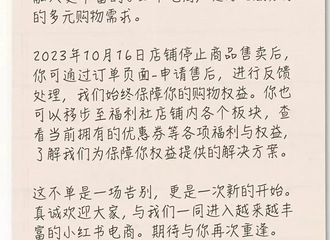 的多元购物需求。
2023年10月16日店铺停止商品售卖后，
你可通过订单页面-申请售后，进行反馈
处理，我们始终保障你的购物权益。你也
可以移步至福利社店铺内各个板块，查
看当前拥有的优惠券等各项福利与权益，
了解我们为保障你权益提供的解决方案。
这不单是一场告别，更是一次新的开始。
真诚欢迎大家，与我们一同进入越来越丰
富的小红书电商。期待与你再次重逢。